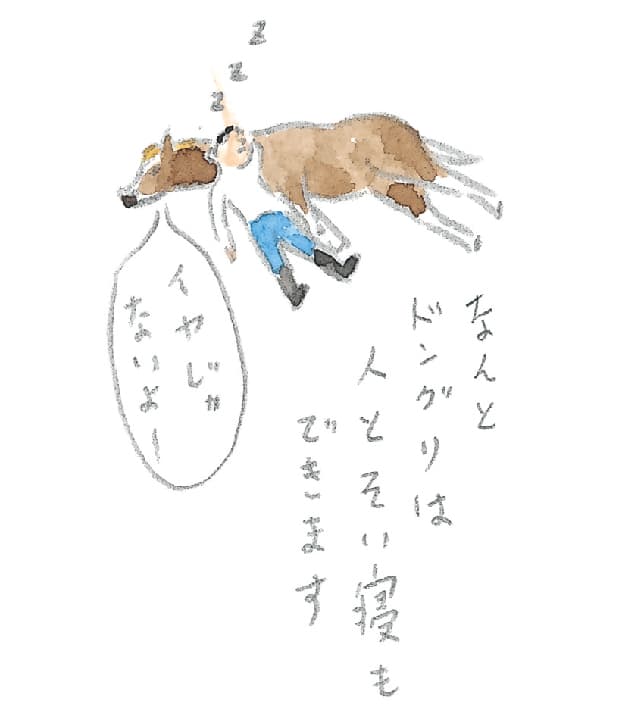 z
z
z
なんと
ドングリは
人とそい寝も
できます
イヤじゃ
ないよー